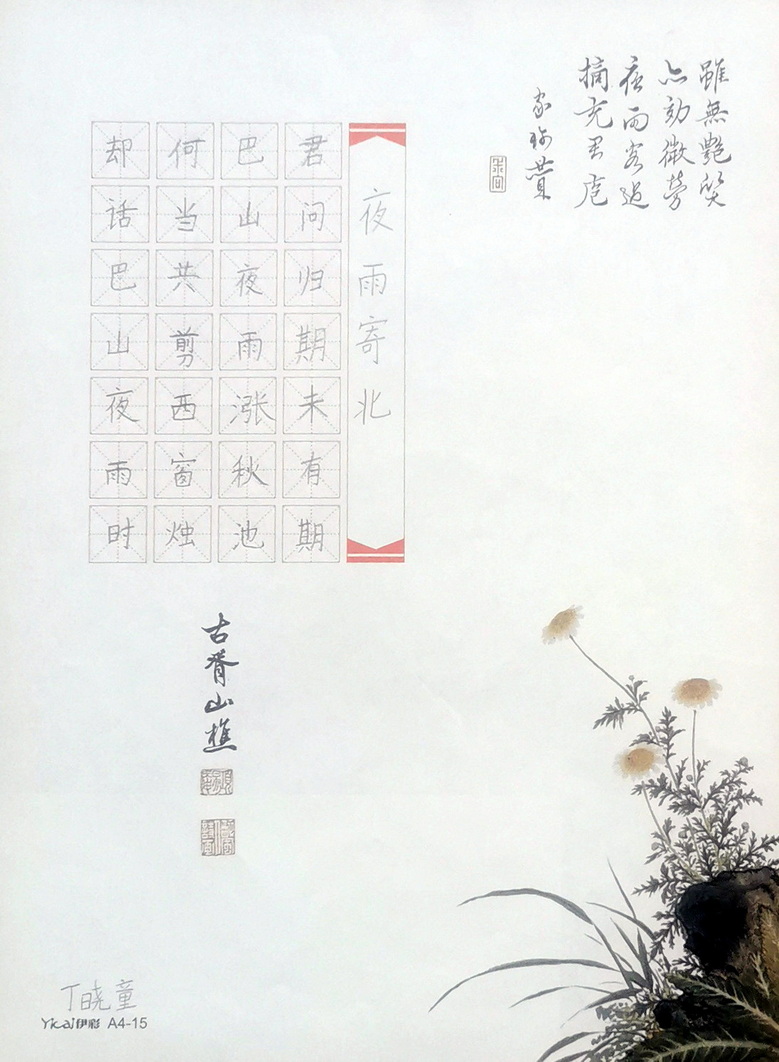 雖無艷笑
亦効微勞
夜雨客過
摘充君庖
夜雨寄北
君问归期未有期
巴山夜雨涨秋池
何当共剪西窗烛
却话巴山夜雨时
古山樵
丁晓童
Yicai伊彩 A4-15